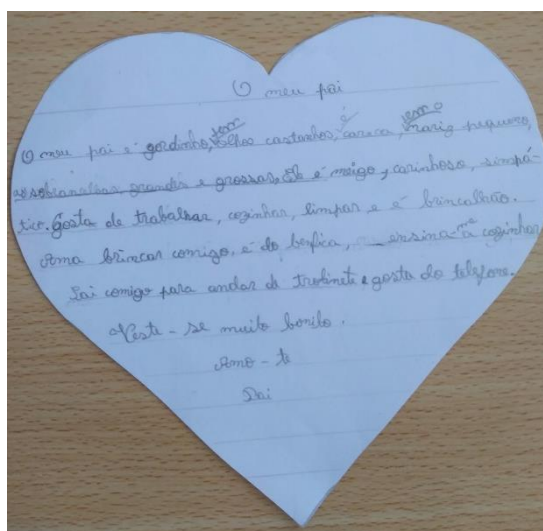 O meu pai
O meu pai é gordinho, tem olhos castanhos, é careca, tem o nariz pequeno,
as sobrancelhas grandes e grossas. Ele é meigo, carinhoso, simpá-
tico. Gosta de trabalhar, cozinhar, limpar e é brincalhão.
Ama brincar comigo, é do benfica, ensina-me a cozinhar
Sai comigo para andar de trotinete e gosta do telefone.
Veste-se muito bonito.
Amo-te
Pai